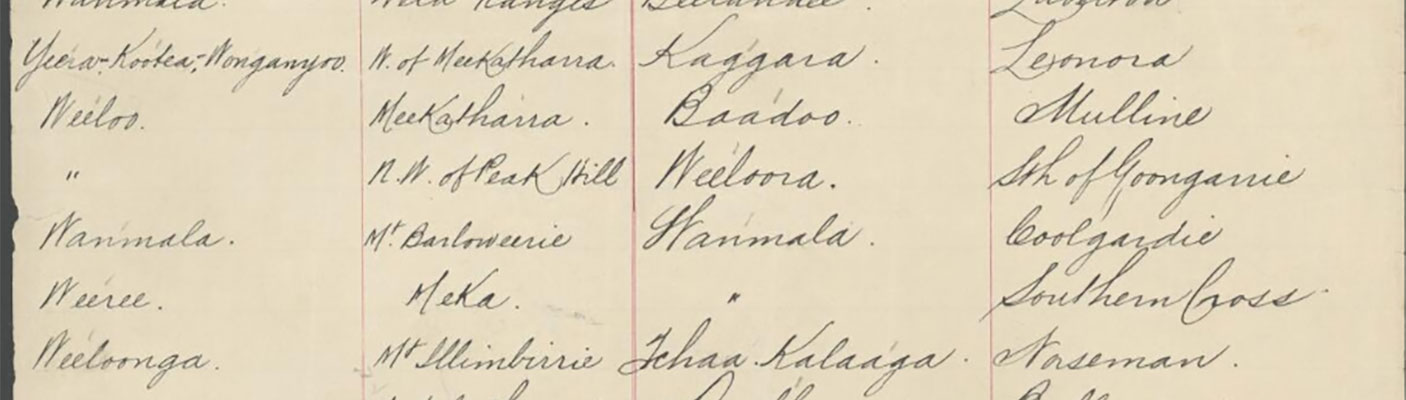 Yeera-Kootea-Wonganyoo. W. of Meekatharra. Kaggara. Leonora
Weeloo. Meekatharra. Baadoo. Mulline
" N.W. of Peak Hill Weeloora. Sth of Goongarrie
Wanmala. Mt. Barloweerie Wanmala. Coolgardie
Weeree. Meka. " Southern Cross.
Weeloonga. Mt Illimbirrie Tchaa. Kalaaga. Norseman.